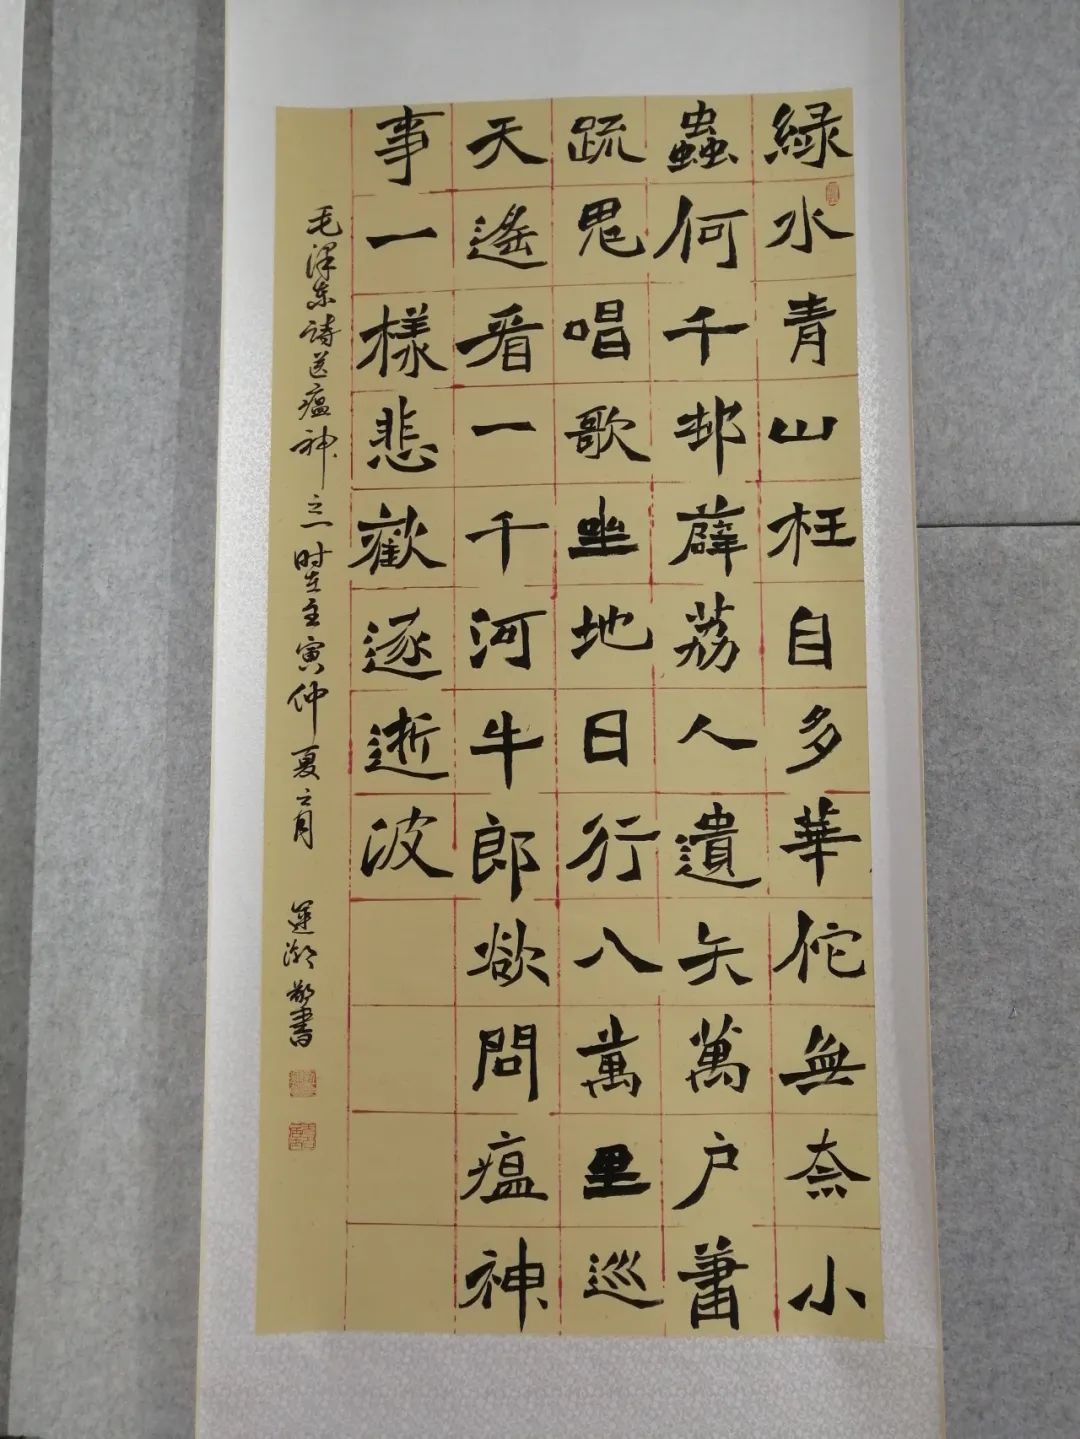 緑水青山枉自多華佗無奈小
蟲何千邨薜荔人遺矢萬戶蕭
疏鬼唱歌坐地日行八萬里巡
天遙看一千河牛郎欲問瘟神
事一樣悲歡逐逝波
毛澤东詩送瘟神之一时在壬寅仲夏之月
蓮湖敬書